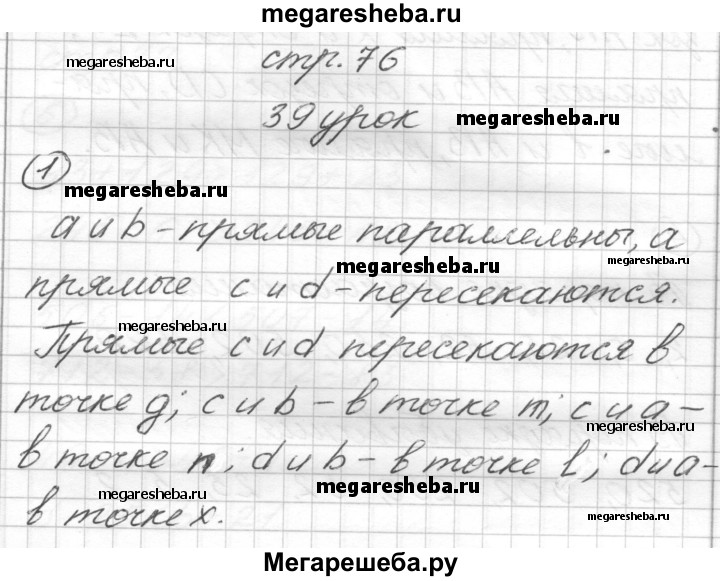 megaresheba.ru
стр. 76
megaresheba.ru
39 урок
megaresheba.ru
1
megaresheba.ru
a и b - прямые параллельны, а
megaresheba.ru
megaresheba.ru
прямые c и d - пересекаются.
megaresheba.ru
Прямые c и d пересекаются в
точке g; c и b - в точке m; c и a -
megaresheba.ru
в точке n; d и b - в точке l; d и a -
megaresheba.ru
megaresheba.ru
в точке x.
megaresheba.ru
Мегарешеба.ру